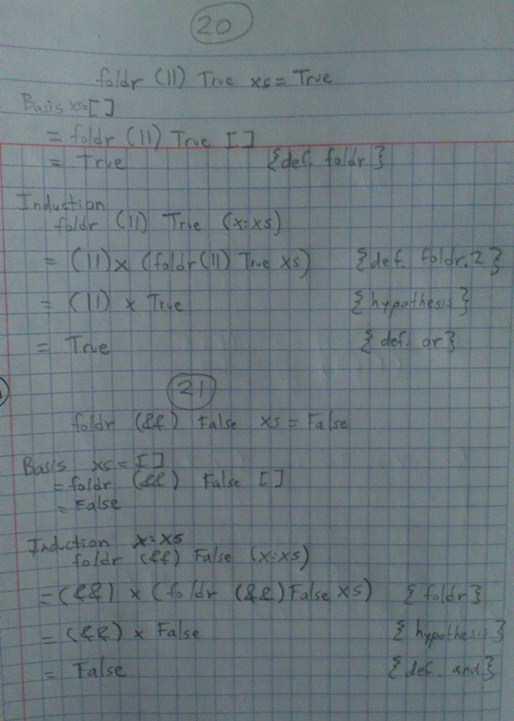 20
foldr (||) True xs = True
Basis xs=[]
= foldr (||) True []
= True {def. foldr}
Induction
foldr (||) True (x:xs)
= (||) x (foldr (||) True xs) {def. foldr.2}
= (||) x True {hypothesis}
= True {def. or}
21
foldr (&&) False xs = False
Basis xs = []
= foldr (&&) False []
= False
Induction x:xs
foldr (&&) False (x:xs)
= (&&) x (foldr (&&) False xs) {foldr}
= (&&) x False {hypothesis}
= False {def. and}